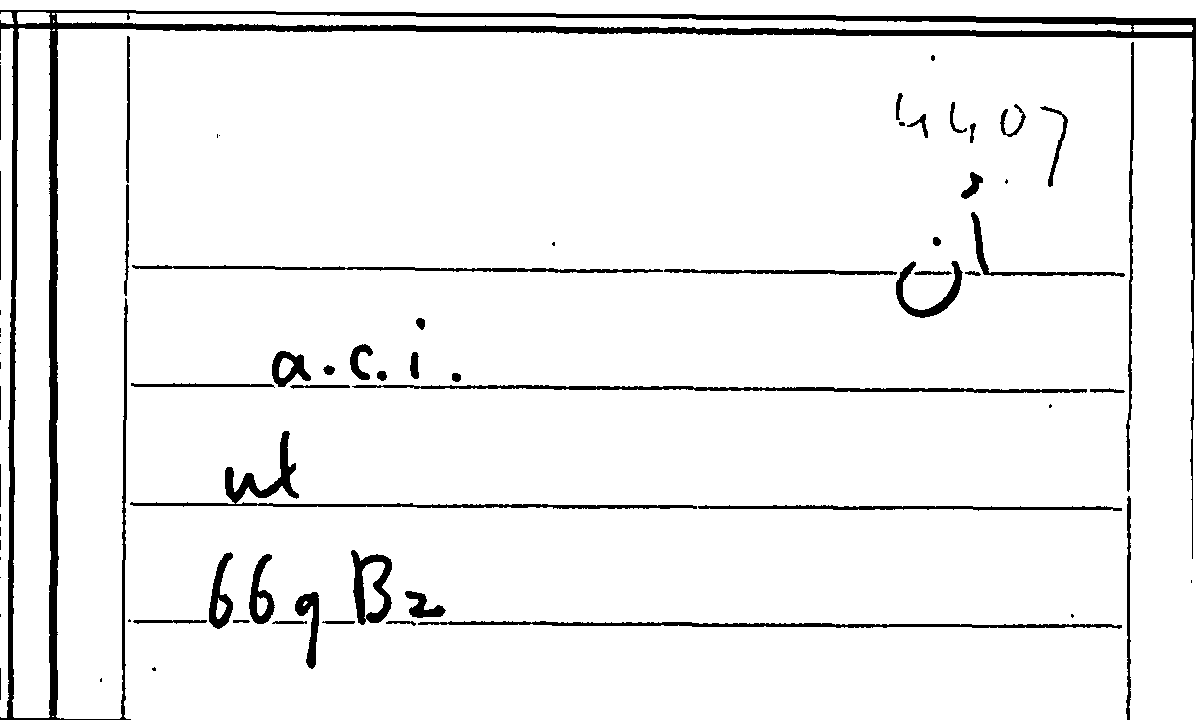 4407
أن
a.c.i.
ut
669 B2